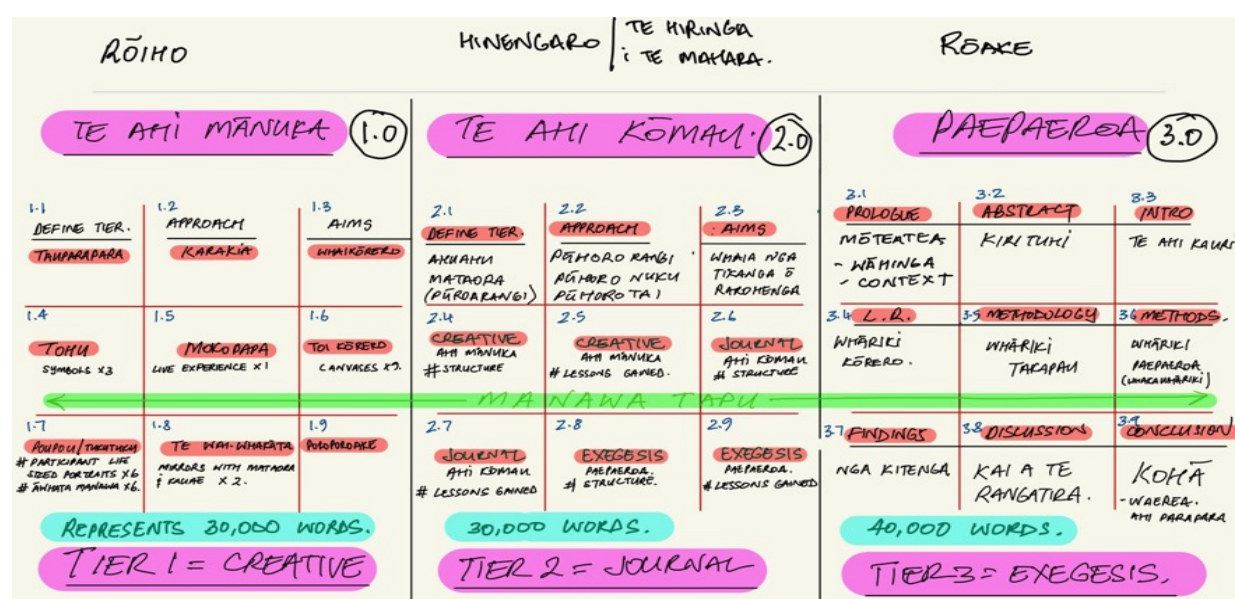 RŌIHO
HINENGARO
TE HIRINGA
i TE MAHARA.
RŌAKE
TE AHI MĀNUKA 1.0
1.1
DEFINE TIER.
TAUPARAPARA
1.2
APPROACH
KARAKIA
1.3
AIMS
WHAIKŌRERO
1.4
TOHU
SYMBOLS x3
1.5
MOKOPAPA
LIVE EXPERIENCE x1
1.6
TOI KŌRERO
1.7
# PARTICIPANT LIFE
SIZED PORTRAITS x6
# ĀWHATA MANAWA x6.
1.8
TE WAI-WHAKATA
MIRRORS WITH MATAORA
& KAUAE x 2.
1.9
POROPOROAKE
REPRESENTS 30,000 WORDS.
TIER 1 = CREATIVE
TE AHI KŌMAU. 2.0
2.1
DEFINE TIER.
AHUAHU
MATAORA
(PŪROARANGI)
2.2
APPROACH
PŪHORO RANGI
PŪHORO NUKU
PŪHORO TAI
2.3
AIMS
WHAIA NGA
TIKANGA Ō
RAROHENGA
2.4
CREATIVE
AHI MĀNUKA
# STRUCTURE
2.5
CREATIVE
AHI MĀNUKA
# LESSONS GAINED.
2.6
JOURNAL
AHI KŌMAU
# STRUCTURE
MANAWA TAPU
2.7
JOURNAL
AHI KŌMAU
# LESSONS GAINED
2.8
EXEGESIS
PAEPAEROA.
# STRUCTURE.
2.9
EXEGESIS
PAEPAEROA.
# LESSONS GAINED
30,000 WORDS.
TIER 2 = JOURNAL
PAEPAEROA 3.0
3.1
PROLOGUE
MŌTEATEA
- WĀHINGA
- CONTEXT
3.2
ABSTRACT
KIRITUHI
3.3
INTRO
TE AHI KAURI
3.4 L.R.
WHĀRIKI
KŌRERO.
3.5 METHODOLOGY
WHĀRIKI
TAKAPAU
3.6 METHODS.
WHĀRIKI
PAEPAEROA
(WHAKAWHĀRIKI)
3.7 FINDINGS
NGA KITENGA
3.8 DISCUSSION
KAI A TE
RANGATIRA.
3.9
CONCLUSION
KOHĀ
- WAEREA.
AHI PARAPARA
40,000 WORDS.
TIER 3 = EXEGESIS.